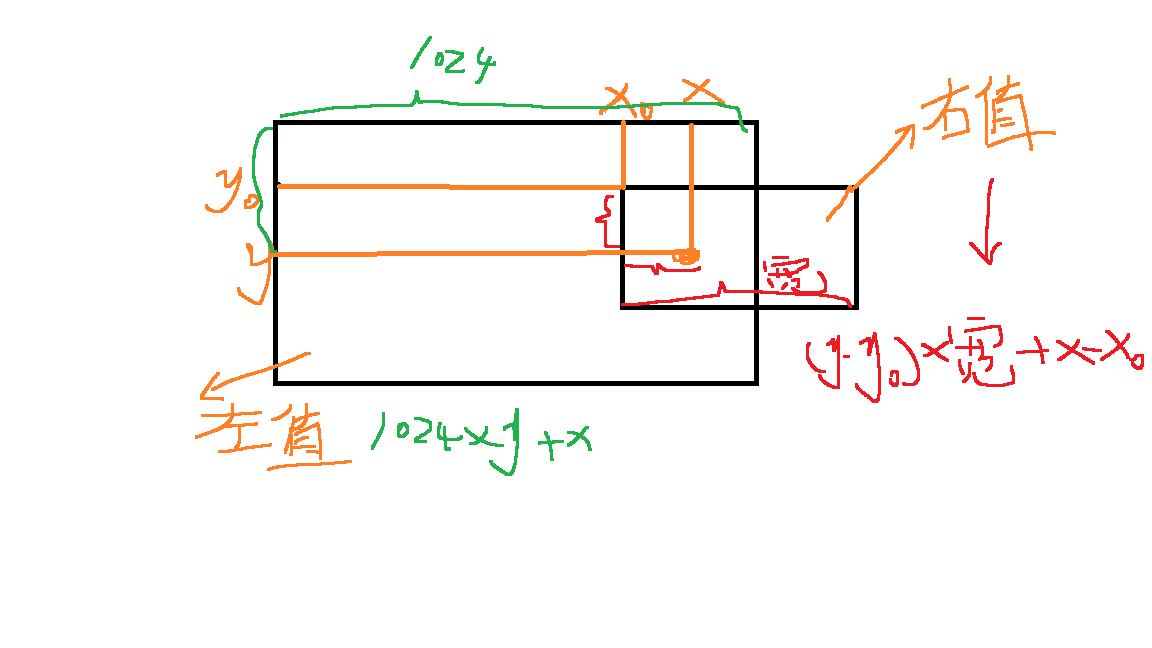 1024
x₀ x
右值
y₀
y
宽
(y-y₀)×宽+x-x₀
左值
1024×y+x